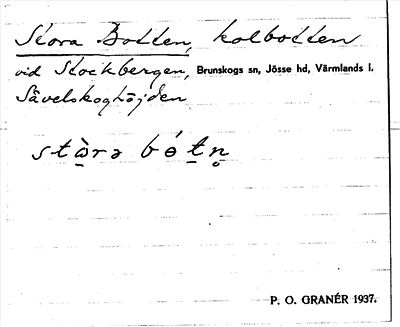 Stora Botten, kolbotten
vid Stockbergen, Brunskogs sn, Jösse hd, Värmlands l.
Sävelskoghöjden
stὰ̖rə bɵ́t̠n̥
P. O. GRANÉR 1937.